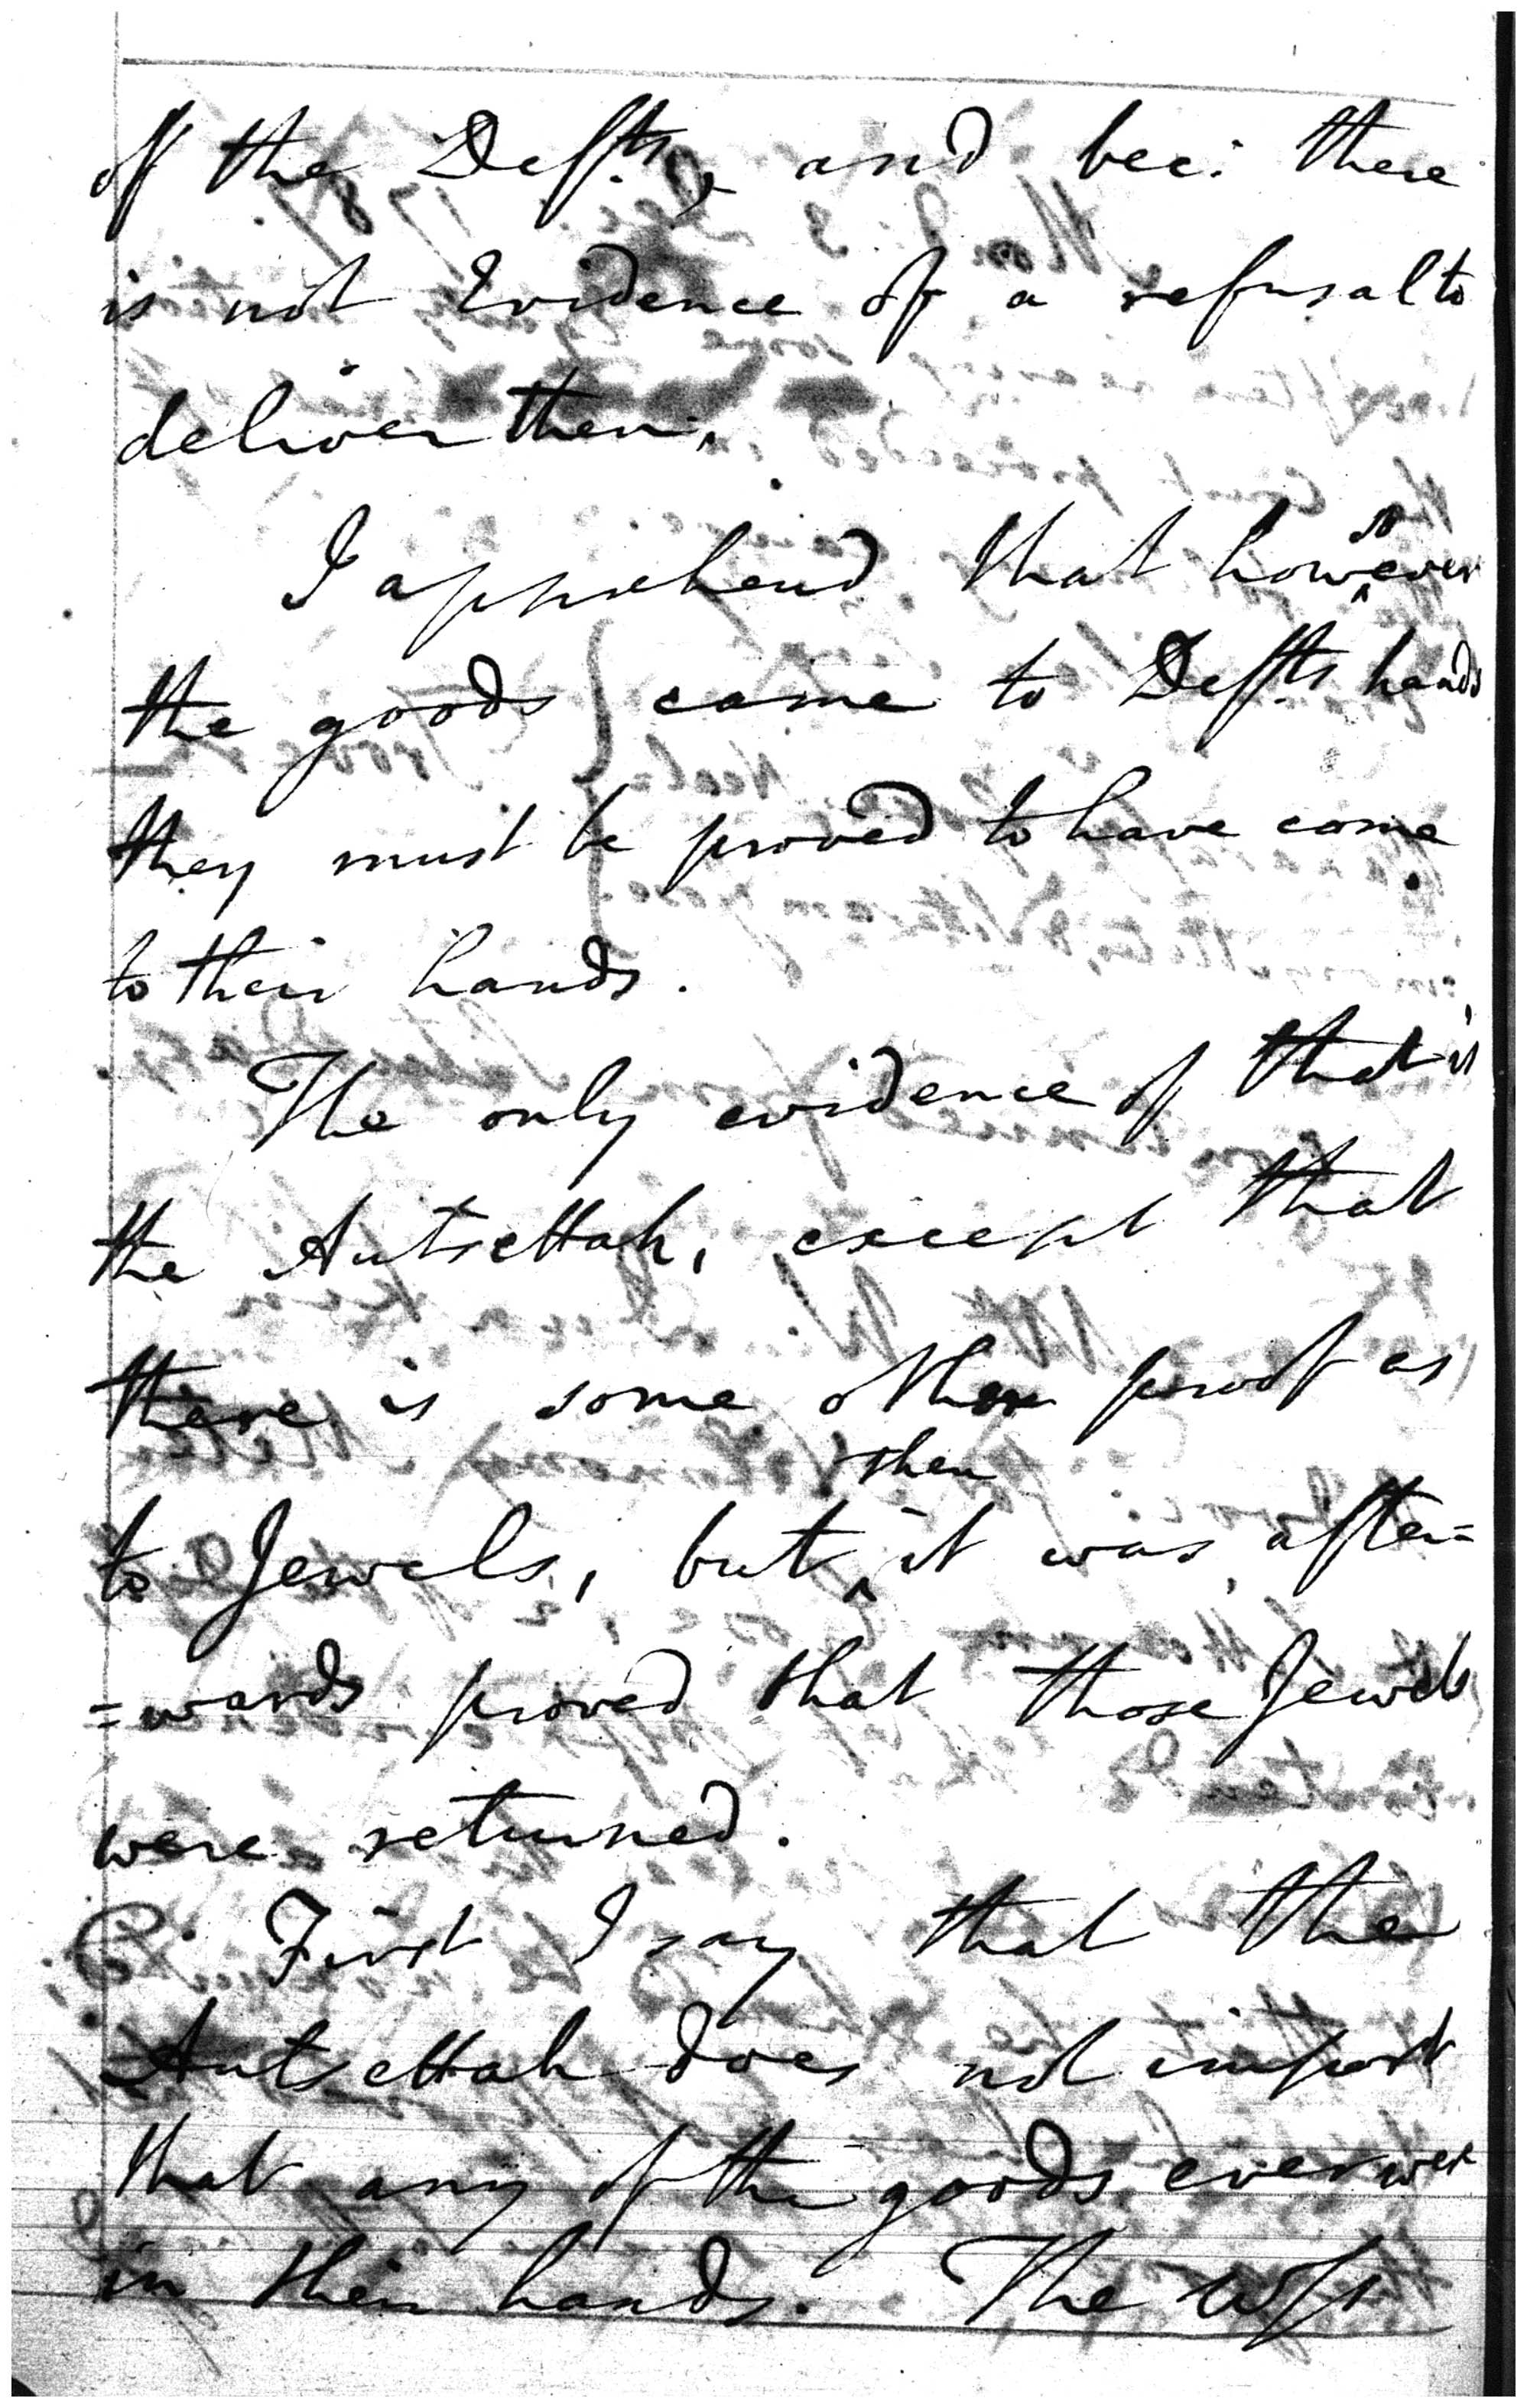 of the Defts, and bec: there
is not Evidence of a refusal to
deliver them.
I apprehend that howsoever
the goods came to Defts hands
they must be proved to have come
to their hands.
The only evidence of that is
the Autsettah, except that
there is some other proof as
to Jewels, but then it was after=
=wards proved that those Jewels
were returned.
First I say that the
Autsettah does not import
that any of the goods ever were
in their hands. The